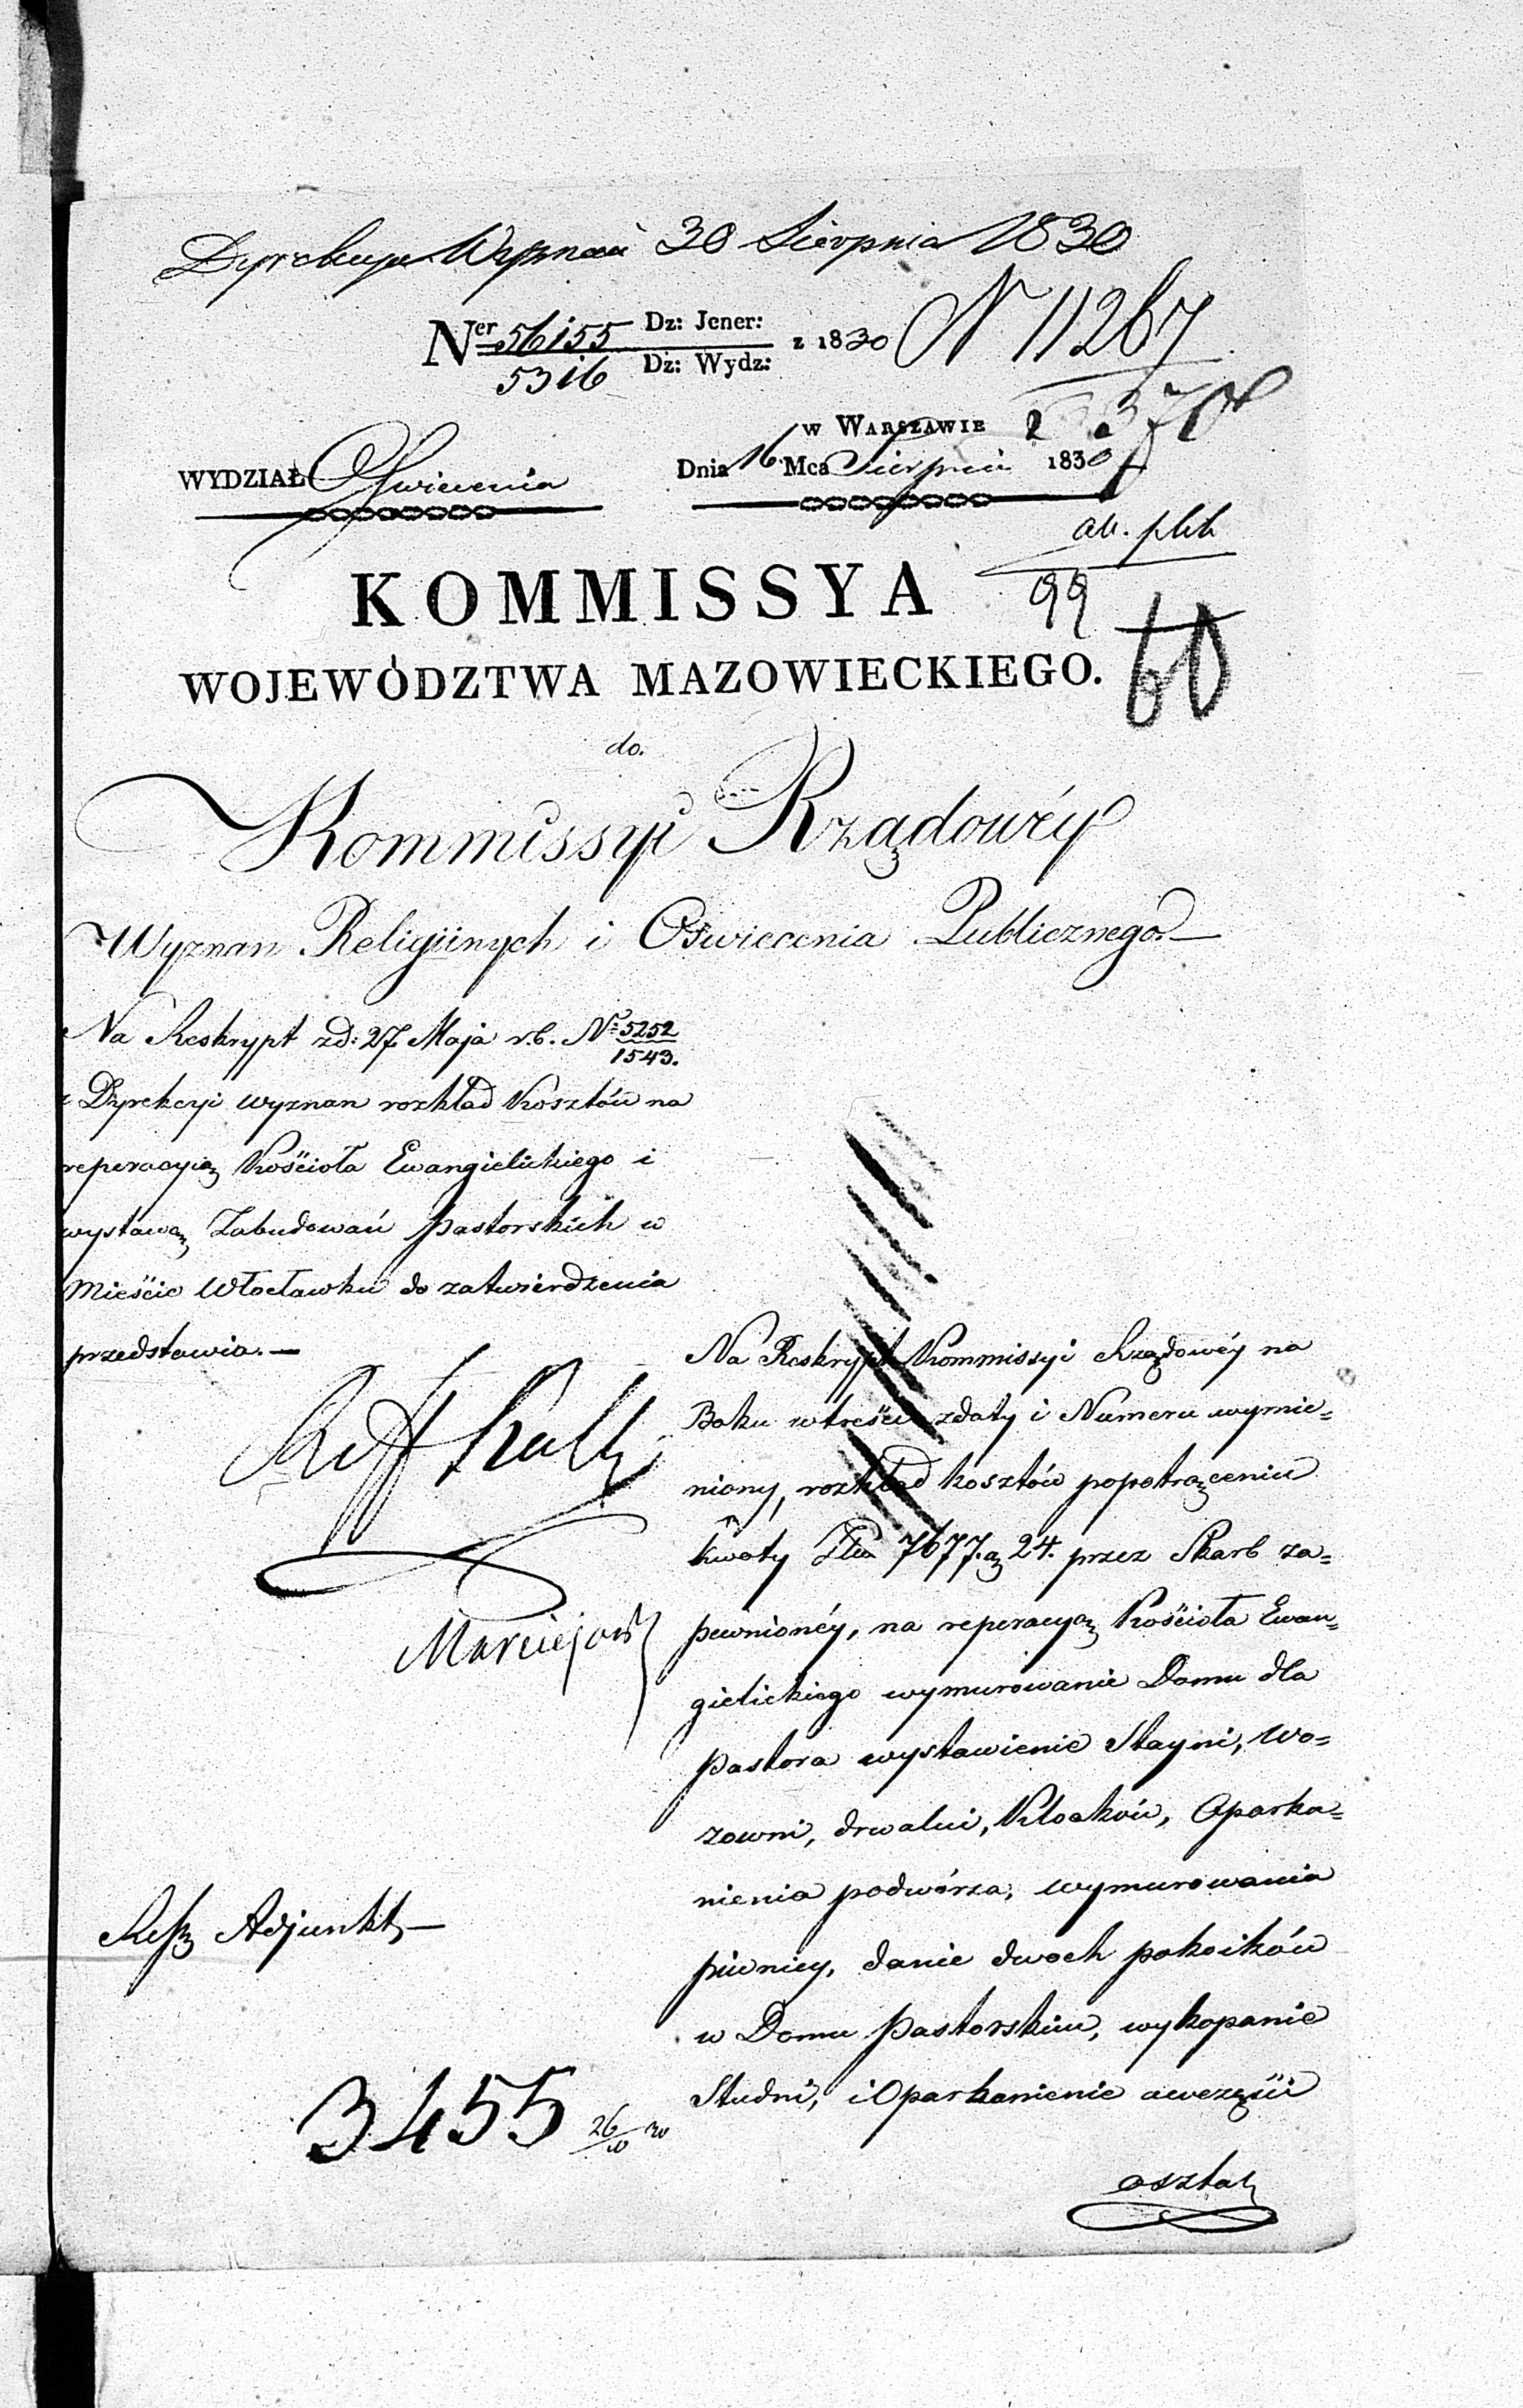 Dyrekcya Wyznań 30 Sierpnia 1830
Ner 56155 Dz: Jener: z 1830 N 11267
5316 Dz: Wydz:
w Warszawie
WYDZIAŁ Oświecenia Dnia 16 Mca Sierpnia 1830
99
60
KOMMISSYA
WOJEWÓDZTWA MAZOWIECKIEGO.
do.
Kommissyi Rządowéy
Wyznan Religiinych i Oświecenia Publicznego.—
Na Reskrypt zd: 27 Maja r.b. No 5252
1543.
z Dyrekcyi wyznan rozkład Kosztów na
reperacyią Kościoła Ewangielickiego i
wystawę Zabudowań Pastorskich w
Mieście Włocławku do zatwierdzenia
przedstawia.—
Na Reskrypt Kommissyi Rządowéy na
Boku w treści z daty i Numeru wymie=
niony, rozkład kosztów po potrąceniu
kwoty Złp 7677. g 24. przez Skarb za=
pewnionéy, na reperacyą Kościoła Ewan=
gielickiego wymurowanie Domu dla
Pastora wystawienie Stayni, Wo=
zowni, drwalni, Kloaków, Oparka=
nienia podwórza, wymurowania
piwnicy, danie dwoch pokoików
w Domu Pastorskim, wykopanie
Studni, i Oparkanienie
Adjunkt
3455 26